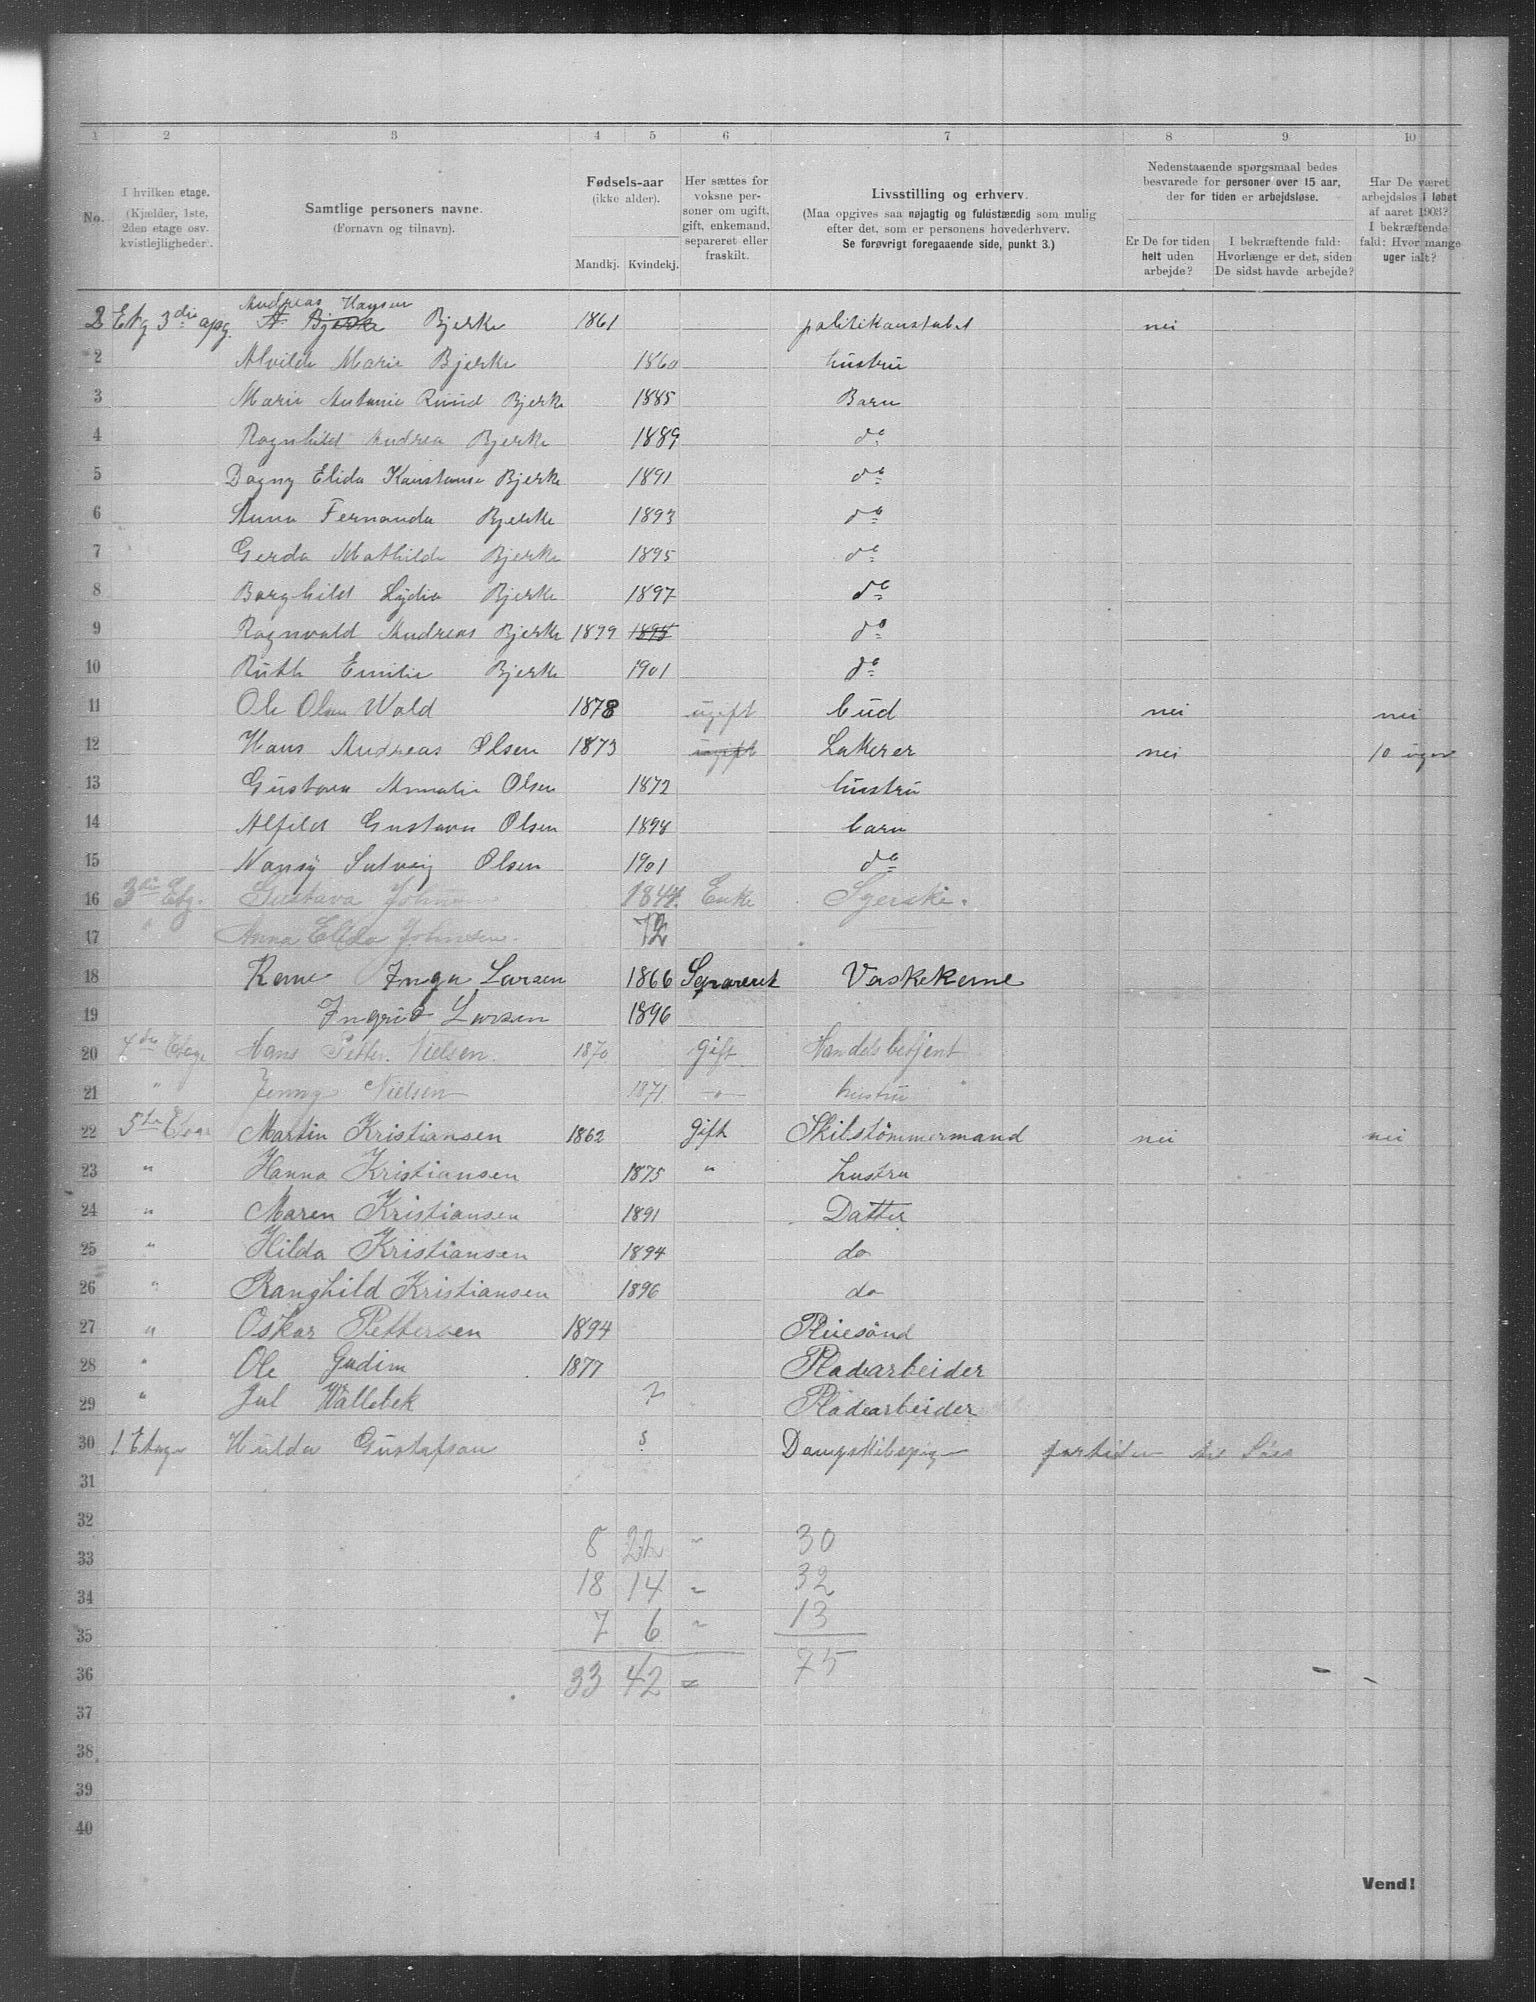 1 2 3 4 5 6 7 8 9 10
No.
I hvilken etage.
(Kjælder, 1ste,
2den etage osv.
kvistlejligheder.
Samtlige personers navne.
(Fornavn og tilnavn).
Fødsels-aar
(ikke alder).
Mandkj. Kvindekj.
Her sættes for
voksne per-
soner om ugift,
gift, enkemand,
separeret eller
fraskilt.
Livsstilling og erhverv.
(Maa opgives saa nøjagtig og fuldstændig som mulig
efter det, som er personens hovederhverv.
Se forøvrigt foregaaende side, punkt 3.)
Nedenstaaende spørgsmaal bedes
besvarede for personer over 15 aar,
der for tiden er arbejdsløse.
Er De for tiden
helt uden
arbejde?
I bekræftende fald:
Hvorlænge er det, siden
De sidst havde arbejde?
Har De været
arbejdsløs i løbet
af aaret 1903?
I bekræftende
fald: Hvor mange
uger ialt?
Andreas Hansen
2 Etg 3die apg. A. Bjerke Bjerke 1861 politikonstabel nei
2 Alvilde Marie Bjerke 1860 hustru
3 Marie Antonie Ruud Bjerke 1885 Barn
4 Ragnhild Andrea Bjerke 1889 do
5 Dagny Elida Konstanse Bjerke 1891 do
6 Anna Fernanda Bjerke 1893 do
7 Gerda Mathilde Bjerke 1895 do
8 Borghild Lydia Bjerke 1897 do
9 Ragnvald Andreas Bjerke 1899 1895 do
10 Ruth Emilie Bjerke 1901 do
11 Ole Olsen Wold 1878 ugift bud nei nei
12 Hans Andreas Olsen 1873 ugift Lakerer nei 10 uger
13 Gustava Annalie Olsen 1872 hustru
14 Alfild Gustava Olsen 1898 barn
15 Nansy Solveig Olsen 1901 do
16 3die Etg. Gustava Johnsen 1844 Enke Syerske.
17 " Anna Elida Johnsen. 72
18 Kone Inga Larsen 1866 Separeret Vaskekone
19 Ingrid Larsen 1896
20 4de Etage Hans Petter Nielsen. 1870 gift Handelsbetjent
21 " Jenny Nielsen 1871 hustru
22 5te Etage Martin Kristiansen 1862 gift Skibstømmermand nei nei
23 " Hanna Kristiansen 1875 " hustru
24 " Maren Kristiansen 1891 Datter
25 " Hilda Kristiansen 1894 do
26 " Ranghild Kristiansen 1896 do
27 " Oskar Pettersen 1894 Pleiesønd
28 " Ole Gudim 1877 Pladearbeider
29 " Jul Wallebek ? Pladearbeider
30 1 Etage Hulda Gustafson Dampskibspige
31
32
33 8 22 " 30
34 18 14 " 32
35 7 6 " 13
36 33 42 = 75
37
38
39
40
Vend!